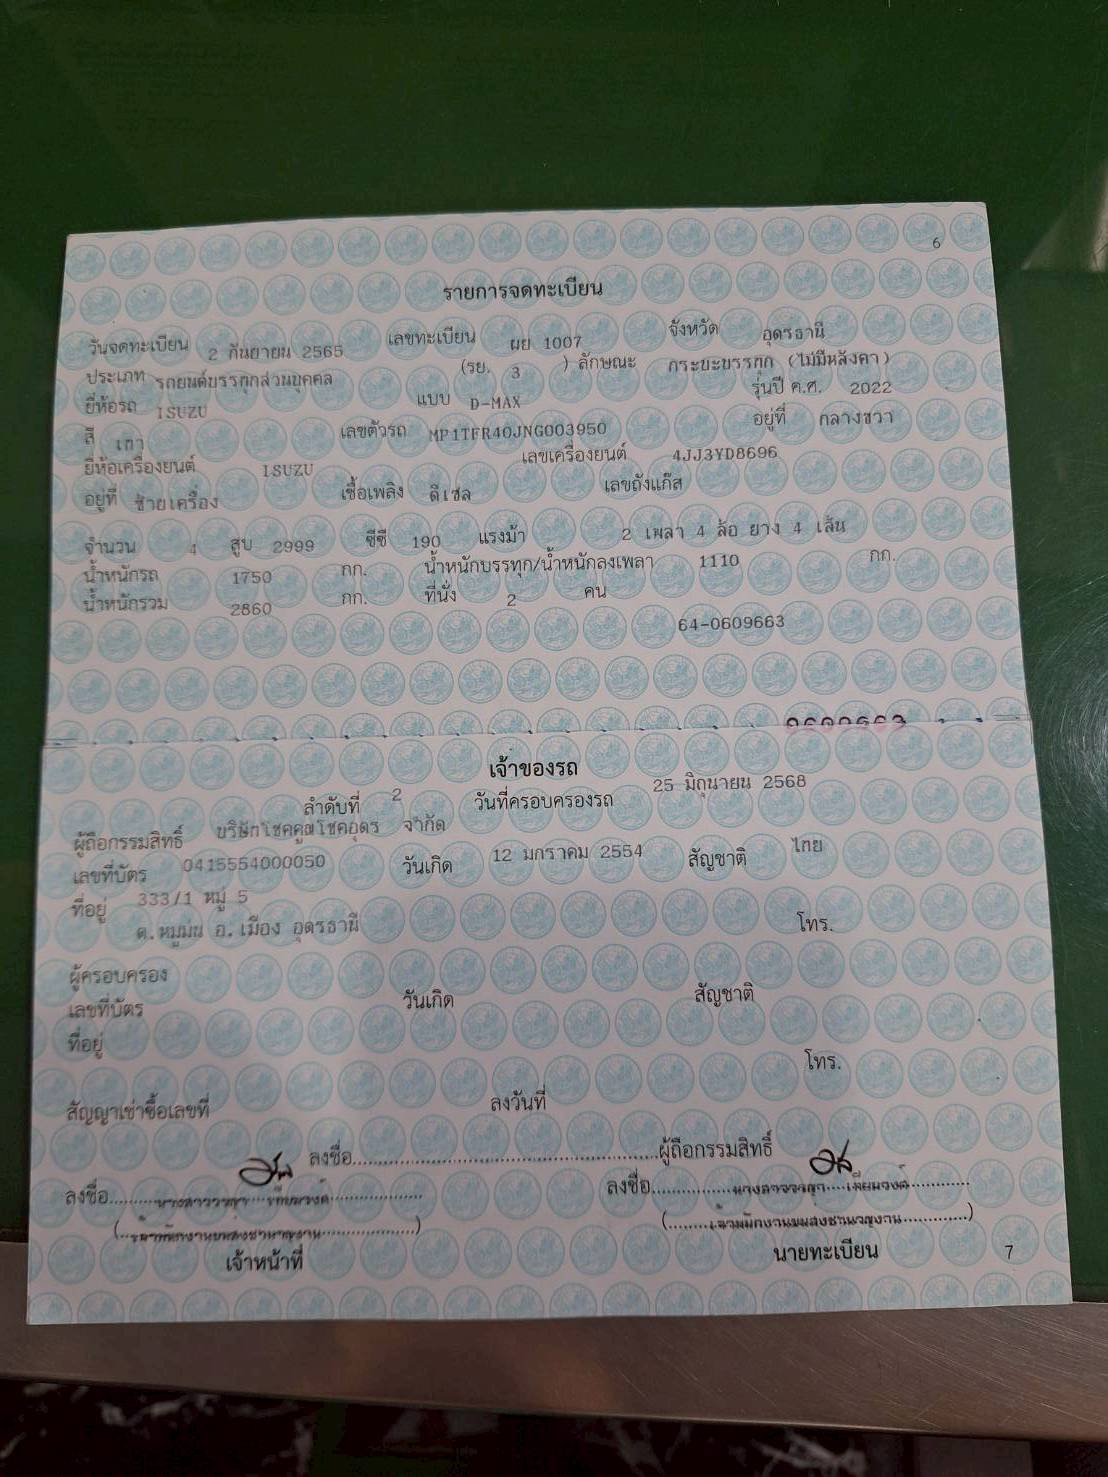 6
รายการจดทะเบียน
วันจดทะเบียน 2 กันยายน 2565 เลขทะเบียน ผย 1007 จังหวัด อุดรธานี
ประเภท รถยนต์บรรทุกส่วนบุคคล (รย. 3 ) ลักษณะ กระบะบรรทุก (ไม่มีหลังคา)
ยี่ห้อรถ ISUZU แบบ D-MAX รุ่นปี ค.ศ. 2022
สี เทา เลขตัวรถ MP1TFR40JNG003950 อยู่ที่ กลางขวา
ยี่ห้อเครื่องยนต์ ISUZU เลขเครื่องยนต์ 4JJ3YD8696
อยู่ที่ ซ้ายเครื่อง เชื้อเพลิง ดีเซล เลขถังแก๊ส
จำนวน 4 สูบ 2999 ซีซี 190 แรงม้า 2 เพลา 4 ล้อ ยาง 4 เส้น
น้ำหนักรถ 1750 กก. น้ำหนักบรรทุก/น้ำหนักลงเพลา 1110 กก.
น้ำหนักรวม 2860 กก. ที่นั่ง 2 คน
64-0609663
เจ้าของรถ
ลำดับที่ 2 วันที่ครอบครองรถ 25 มิถุนายน 2568
ผู้ถือกรรมสิทธิ์ บริษัทโชคคูณโชคอุดร จำกัด
เลขที่บัตร 0415554000050 วันเกิด 12 มกราคม 2554 สัญชาติ ไทย
ที่อยู่ 333/1 หมู่ 5
ต.หมูม่น อ.เมือง อุดรธานี โทร.
ผู้ครอบครอง
เลขที่บัตร วันเกิด สัญชาติ
ที่อยู่
โทร.
สัญญาเช่าซื้อเลขที่ ลงวันที่
ลงชื่อ ผู้ถือกรรมสิทธิ์
ลงชื่อ ลงชื่อ
เจ้าหน้าที่ นายทะเบียน
7